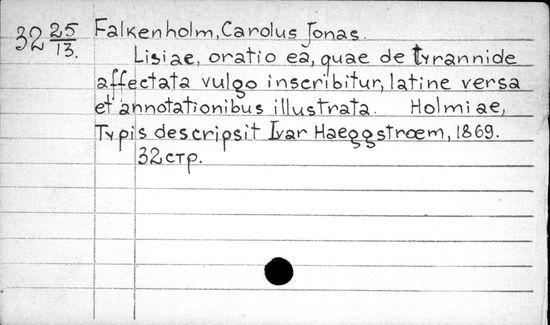 32 25/13. Falkenholm, Carolus Jonas.
Lisiae, oratio ea, quae de tyrannide
affectata vulgo inscribitur, latine versa
et annotationibus illustrata. Holmiae,
Typis descripsit Ivar Haeggstroem, 1869.
32 стр.